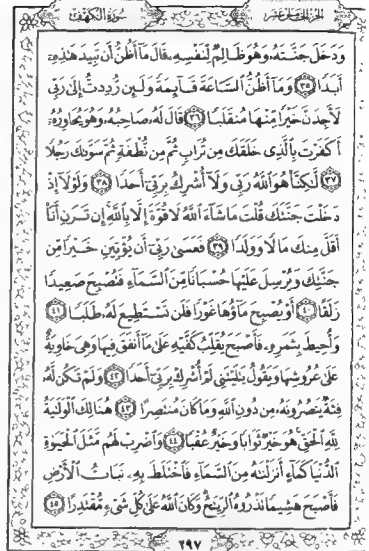 الجزء الخامس عشر
سورة الكهف
وَدَخَلَ جَنَّتَهُۥ وَهُوَ ظَالِمٌ لِّنَفْسِهِۦ قَالَ مَآ أَظُنُّ أَن تَبِيدَ هَٰذِهِۦٓ
أَبَدًا ٣٥ وَمَآ أَظُنُّ ٱلسَّاعَةَ قَآئِمَةً وَلَئِن رُّدِدتُّ إِلَىٰ رَبِّى
لَأَجِدَنَّ خَيْرًا مِّنْهَا مُنقَلَبًا ٣٦ قَالَ لَهُۥ صَاحِبُهُۥ وَهُوَ يُحَاوِرُهُۥٓ
أَكَفَرْتَ بِٱلَّذِى خَلَقَكَ مِن تُرَابٍ ثُمَّ مِن نُّطْفَةٍ ثُمَّ سَوَّىٰكَ رَجُلًا
٣٧ لَّٰكِنَّا۠ هُوَ ٱللَّهُ رَبِّى وَلَآ أُشْرِكُ بِرَبِّىٓ أَحَدًا ٣٨ وَلَوْلَآ إِذْ
دَخَلْتَ جَنَّتَكَ قُلْتَ مَا شَآءَ ٱللَّهُ لَا قُوَّةَ إِلَّا بِٱللَّهِ إِن تَرَنِ أَنَا۠
أَقَلَّ مِنكَ مَالًا وَوَلَدًا ٣٩ فَعَسَىٰ رَبِّىٓ أَن يُؤْتِيَنِ خَيْرًا مِّن
جَنَّتِكَ وَيُرْسِلَ عَلَيْهَا حُسْبَانًا مِّنَ ٱلسَّمَآءِ فَتُصْبِحَ صَعِيدًا
زَلَقًا ٤٠ أَوْ يُصْبِحَ مَآؤُهَا غَوْرًا فَلَن تَسْتَطِيعَ لَهُۥ طَلَبًا ٤١
وَأُحِيطَ بِثَمَرِهِۦ فَأَصْبَحَ يُقَلِّبُ كَفَّيْهِ عَلَىٰ مَآ أَنفَقَ فِيهَا وَهِىَ خَاوِيَةٌ
عَلَىٰ عُرُوشِهَا وَيَقُولُ يَٰلَيْتَنِى لَمْ أُشْرِكْ بِرَبِّىٓ أَحَدًا ٤٢ وَلَمْ تَكُن لَّهُۥ
فِئَةٌ يَنصُرُونَهُۥ مِن دُونِ ٱللَّهِ وَمَا كَانَ مُنتَصِرًا ٤٣ هُنَالِكَ ٱلْوَلَٰيَةُ
لِلَّهِ ٱلْحَقِّ هُوَ خَيْرٌ ثَوَابًا وَخَيْرٌ عُقْبًا ٤٤ وَٱضْرِبْ لَهُم مَّثَلَ ٱلْحَيَوٰةِ
ٱلدُّنْيَا كَمَآءٍ أَنزَلْنَٰهُ مِنَ ٱلسَّمَآءِ فَٱخْتَلَطَ بِهِۦ نَبَاتُ ٱلْأَرْضِ
فَأَصْبَحَ هَشِيمًا تَذْرُوهُ ٱلرِّيَٰحُ وَكَانَ ٱللَّهُ عَلَىٰ كُلِّ شَىْءٍ مُّقْتَدِرًا ٤٥
٢٩٧